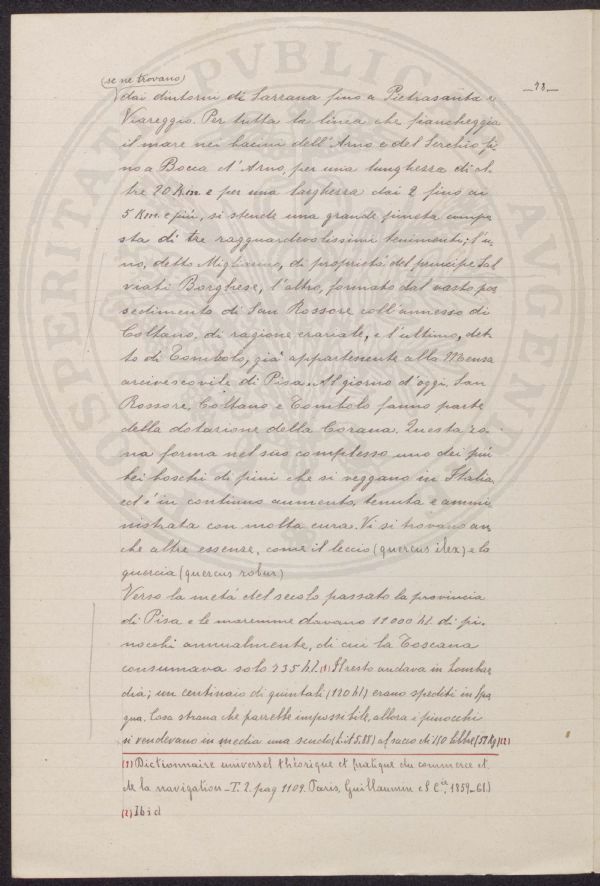 (se ne trovano)
— 98 —
dai dintorni di Sarzana fino a Pietrasanta e
Viareggio. Per tutta la linea che fiancheggia
il mare nei bacini dell'Arno e del Serchio, fi-
no a Bocca d'Arno, per una lunghezza di ol-
tre 20 Km e per una larghezza dai 2 fino ai
5 Km. e più, si stende una grande pineta compo
sta di tre ragguardevolissimi tenimenti; l'u-
no, detto Migliarino, di proprietà del principe Sal
viati Borghese, l'altro, formato dal vasto pos
sedimento di San Rossore coll'annesso di
Coltano, di ragione erariale, e l'ultimo, det-
to di Tombolo, già appartenente alla Mensa
arcivescovile di Pisa. Al giorno d'oggi, San
Rossore, Coltano e Tombolo fanno parte
della dotazione della Corona. Questa zo-
na forma nel suo complesso uno dei più
bei boschi di pini che si veggano in Italia,
ed è in continuo aumento, tenuta e ammi-
nistrata con molta cura. Vi si trovano an-
che altre essenze, come il leccio (quercus ilex) e la
quercia (quercus robur)
Verso la metà del secolo passato la provincia
di Pisa e le maremme davano 11000 hl. di pi-
nocchi annualmente, di cui la Toscana
consumava solo 235 hl. (1) Il resto andava in Lombar
dia; un centinaio di quintali (120 hl) erano spediti in Spa
gna. Cosa strana che parrebbe impossibile, allora i pinocchi
si vendevano in media uno scudo (Lit 5,88) al sacco di 150 libbre (51 Kg) (2)
(1) Dictionnaire universel théorique et pratique du commerce et
de la navigation - T. 2. pag 1109. Paris, Guillaumin et C.ie, 1859-61)
(2) Ibid
PVBLICAE
AVGENDAE
PROSPERITATI